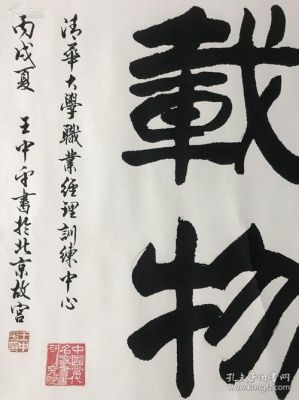 載物
清華大學職業經理訓練中心
丙戌夏 王中平書於北京故宮
中國當代
名家書畫
研究院
孔夫子旧书网